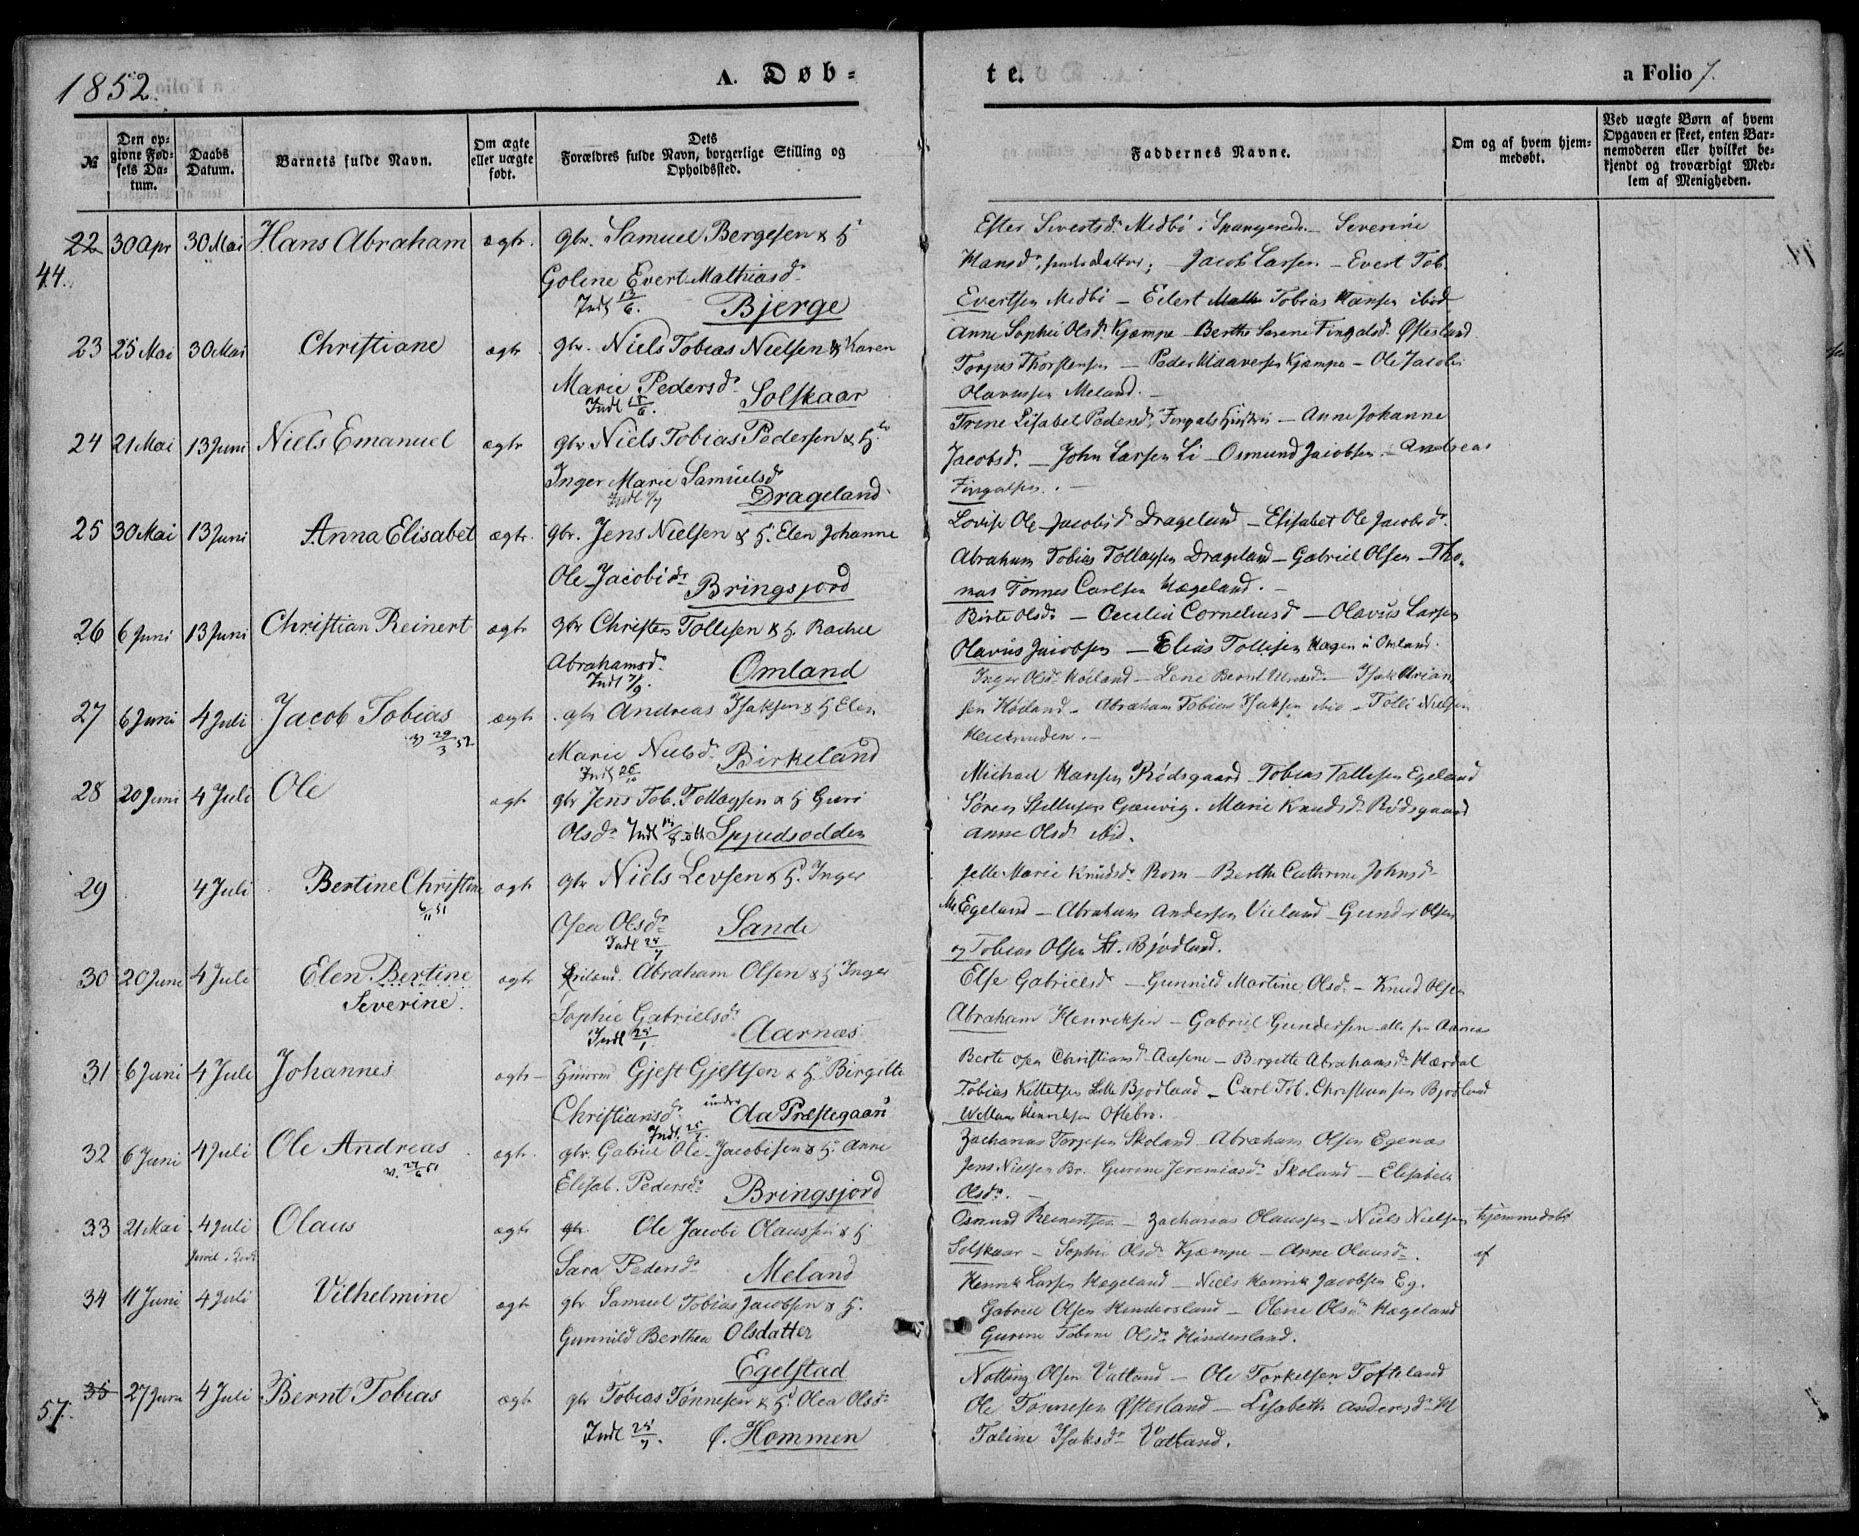 1852.
A. Døb-
te.
a Folio 7.
№
Den opgivne Fødsels Datum.
Daabs Datum.
Barnets fulde Navn.
Om ægte eller uægte født.
Dets Forældres fulde Navn, borgerlige Stilling og Opholdssted.
Faddernes Navne.
Om og af hvem hjemmedøbt.
Ved uægte Børn af hvem Opgaven er skeet, enten Barnemoderen eller hvilket bekjendt og troværdigt Medlem af Menigheden.
22 30 Apr 30 Mai Hans Abraham ægte. gbr. Samuel Bergesen & H
44. Goline Evert-Mathiasd.
Indl 13/6. Bjerge
Sivertsd. Medbö i Spangereid. Severine
Hansd. Jacob Larsen - Evert Tob.
Evertsen Medbö - Eilert Tobias Hansen ibid
23 25 Mai 30 Mai Christiane ægte gbr. Niels Tobias Nielsen & H Karen
Marie Pedersd.
Indl Solskaar
Anne Sophie Olsd. Kjæmpe - Berthe Serene Fingalsd. Øftesland
Torjus Thorstensen - Peder Haaversen Kjæmpe - Ole Jacob
Olaussen Meland. -
24 21 Mai 13 Juni Niels Emanuel ægte gbr Niels Tobias Pedersen & H.
Inger Marie Samuelsd
Indl Drageland
Trine Lisabet Pedersd. Fingals Hustru - Anne Johanne
Jacobsd. - John Larsen Li - Osmund Jacobsen - Andreas
Fingalsen. -
25 30 Mai 13 Juni Anna Elisabet ægte. gbr. Jens Nielsen & H. Elen Johanne
Ole-Jacobsd. Bringsjord
Lovise Ole-Jacobsd. Drageland - Elisabet Ole Jacobsd.
Abraham Tobias Tollagsen Drageland - Gabriel Olsen - Tho-
mas Tønnes Carlsen Hægeland. -
26 6 Juni 13 Juni Christian Reinert ægte gbr Christen Tollisen & H. Rachel
Abrahamsd.
Indl 7/9. Omland
Birte Olsd. - Cecilie Corneliusd - Olavus Larsen
Olavus Jacobsen - Elias Tollisen Hagen i Omland.
27 6 Juni 4 Juli Jacob Tobias ægte gbr Andreas Isaksen & H Elen
v 29/3 52
Marie Nielsd.
Indl Birkeland
Inger Olsd Höiland - Lene Isak Arian-
sen Höiland - Abraham Tobias Isaksen - Tolli Nielsen
28 20 Juni 4 Juli Ole ægte gbr Jens Tob. Tollagsen & H Guri
Olsd. Indl Spjudsodden
Michael Hansen Rødsgaard - Tobias Tallisen Egeland
Sören Gjæuvig. Marie Knudsd. Rødsgaard
Anne Olsd. ibid.
29 4 Juli Bertine Christine ægte gbr Niels Levsen & H. Inger
6/11 51
Osea Olsd.
Indl 24/7 Sande
Jelle Marie Knudsd. Rom - Berthe Cathrine Johnsd
Egeland - Abraham Andersen Vieland - Gunder Olsen
og Tobias Olsen St. Bjødland.
30 20 Juni 4 Juli Elen Bertine ægte Abraham Olsen & H Inger
Severine.
Sophie Gabrielsd.
Indl Aarnæs
Else Gabrielsd - Gunnild Martine Olsd. - Knud Olsen
Abraham Henriksen - Gabriel Gundersen alle fra Aarnæs
31 6 Juni 4 Juli Johannes ægte - Gjest Gjestsen & H. Birgitte
Christiansd. under da Præstegaard
Indl.
Berte Christiansd. Aasene - Birgitte Abrahamsd. Hærdal
Tobias Kittelsen Lille Bjødland - Carl Tob. Christiansen Bjødland
Willum Henriksen Oftebro.
32 6 Juni 4 Juli Ole Andreas ægte. gbr. Gabriel Ole-Jacobsen & H. Anne
v. 27/6 51
Elisab. Pedersd. Bringsjord
Zacharias Torjesen Skoland - Abraham Olsen Egenæs
Jens Nielsen Br. Gurine Jeremiasd. Skoland - Elisabeth
Olsd. -
33 21 Mai 4 Juli Olaus ægte gbr. Ole Jacob Olaussen & H
Sara Pedersd. Meland
Osmund Reinertsen - Zacharias Olaussen - Niels Nielsen hjemmedøbt
Solskaar - Sophie Olsd. Kjæmpe - Anne Olausd. af
34 11 Juni 4 Juli Vilhelmine ægte gbr. Samuel Tobias Jacobsen & H.
Gunnild Berthea Olsdatter
Egelstad
Henrik Larsen Hægeland - Niels Henrik Jacobsen Eg.
Gabriel Olsen Hindersland - Olene Olsd. Hægeland
Gurine Tobine Olsd. Hindersland.
35 27 Juni 4 Juli Bernt Tobias ægte gbr Tobias Tønnesen & H. Olea Olsd.
57. Indl 25/7. Ø. Hommen
Notting Olsen Vatland - Ole Torkelsen Tofteland
Ole Tönnesen Øftesland - Lisabeth Andersd. H
Taline Isaksd. Vatland.